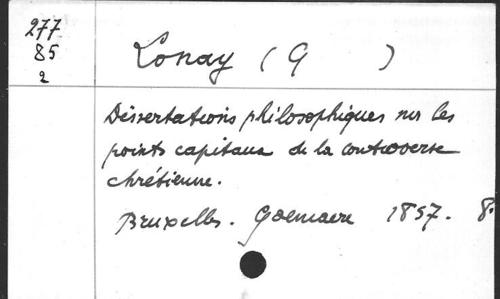 277
85
2
Lonay (G )
Dissertations philosophiques sur les
points capitaux de la controverse
chrétienne.
Bruxelles. Goemaere 1857. 8.